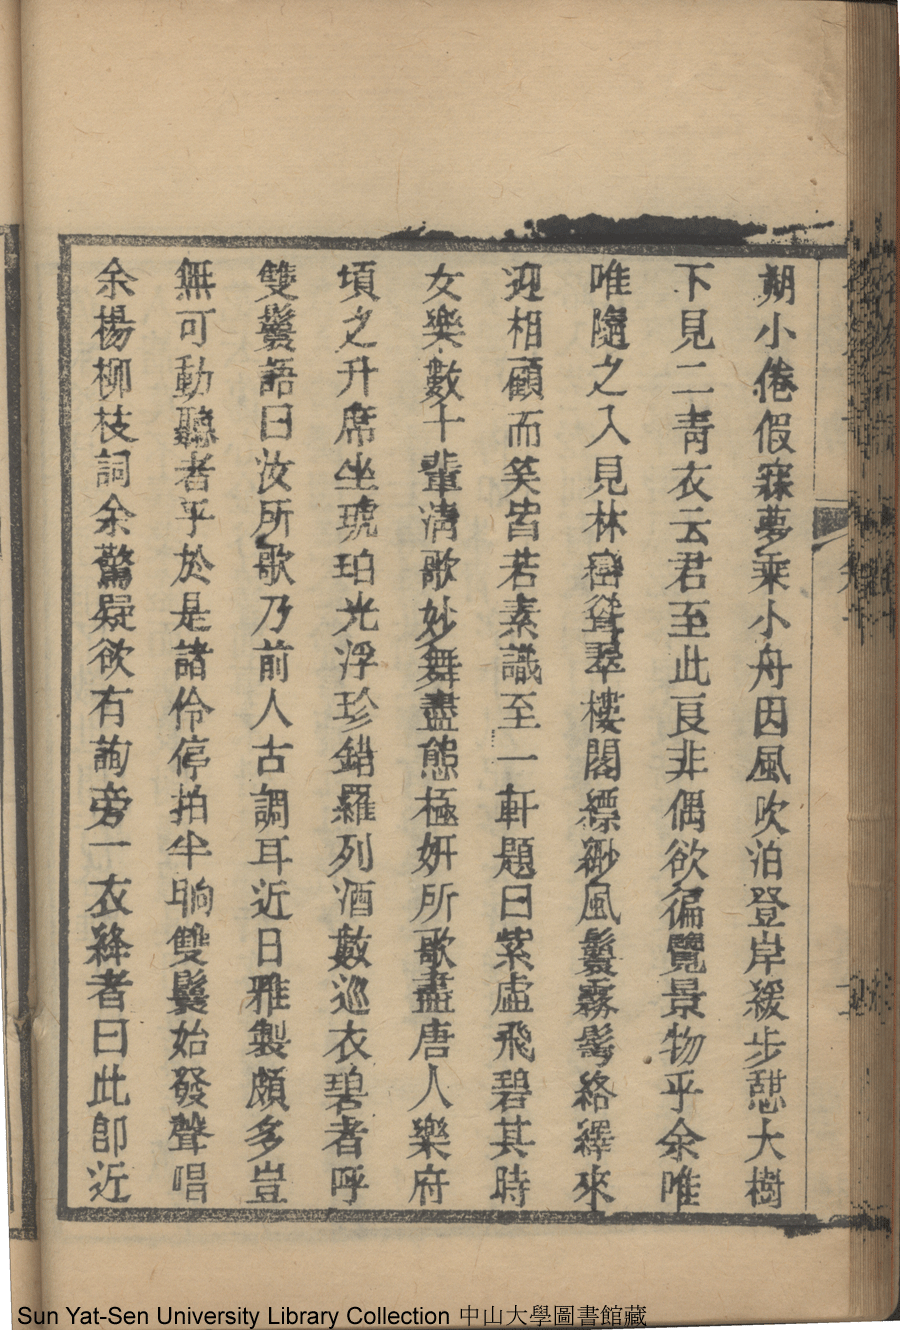 期小倦假寐夢乘小舟因風吹泊登岸緩步憇大樹
下見二靑衣云君至此良非偶欲徧覽景物乎余唯
唯隨之入見林巒聳翠樓閣縹緲風鬟霧鬢絡繹來
迎相顧而笑皆若素識至一軒題曰紫虛飛碧其時
女樂數十輩淸歌妙舞盡態極妍所歌盡唐人樂府
頃之升席坐琥珀光浮珍錯羅列酒數巡衣碧者呼
雙鬟語曰汝所歌乃前人古調耳近日雅製頗多豈
無可動聽者乎於是諸伶停拍半晌雙鬟始發聲唱
余楊柳枝詞余驚疑欲有詢旁一衣絳者曰此卽近
Sun Yat-Sen University Library Collection 中山大學圖書館藏